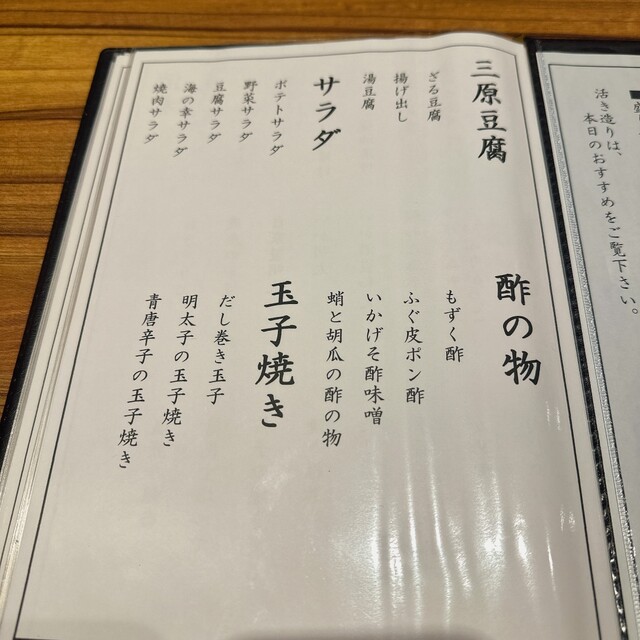 活き造りは、
本日のおすすめをご覧下さい。
三原豆腐
ざる豆腐
揚げ出し
湯豆腐
サラダ
ポテトサラダ
野菜サラダ
豆腐サラダ
海の幸サラダ
焼肉サラダ
酢の物
もずく酢
ふぐ皮ポン酢
いかげそ酢味噌
蛸と胡瓜の酢の物
玉子焼き
だし巻き玉子
明太子の玉子焼き
青唐辛子の玉子焼き